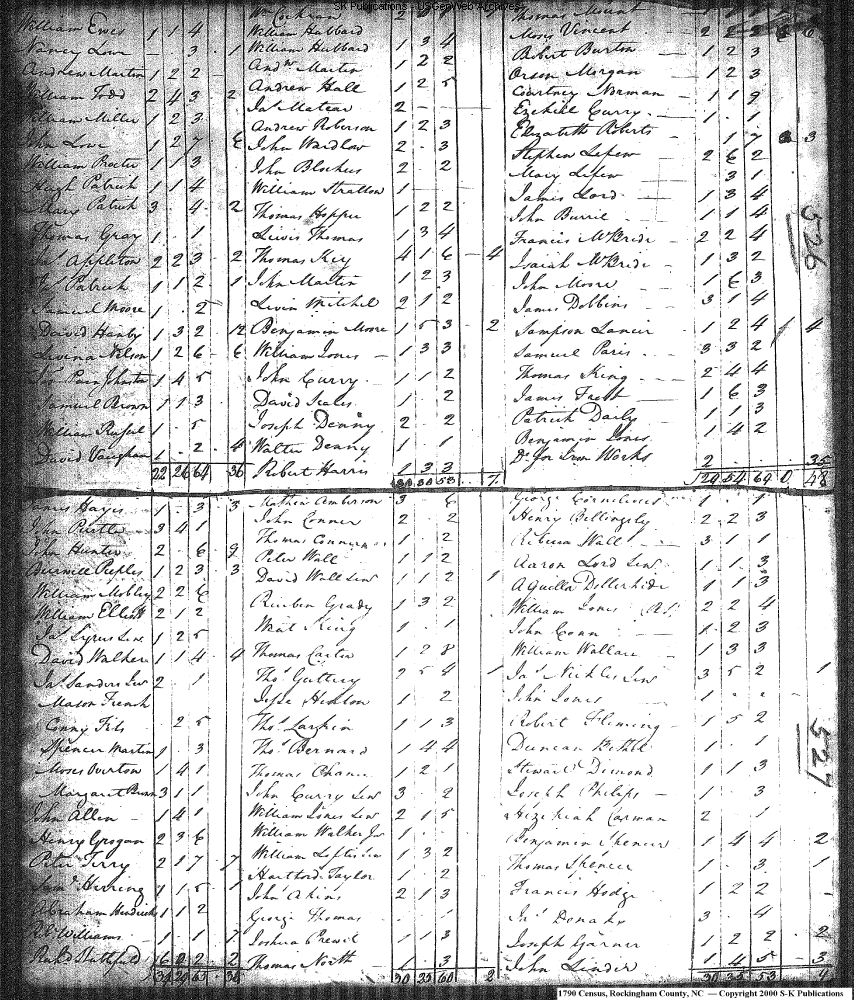 SK Publications - USGenWeb Archives
William Ewes 1 1 4
Nancy Love - 3 - 1
Andrew Martin 1 2 2 -
William Todd 2 4 3 2
William Miller 1 2 3
John Love 1 2 7 6
William Procter 1 1 3
Hugh Patrick 1 1 4
Mary Patrick 3 . 4 . 2
Thomas Gray 1 . 1
Jas Appleton 2 2 3 . 2
Jos Patrick 1 1 2 . 1
Samuel Moore 1 . 2
David Hanby 1 3 2 . 12
Livina Nelson 1 2 6 - 6
Jos Pain Johnston 1 4 5
Samuel Brown 1 1 3
William Russel 1 . 5
David Vaughan 1 . 2 . 4
22 26 64 36
Wm Cockran
William Hubbard
William Hubbard 1 3 4
Andw Martin 1 2 2
Andrew Hall 1 2 5
Jas Matear 2 -
Andrew Roberson 1 2 3
John Wardlow 2 . 3
John Blackus 2 2
William Stratton 1
Thomas Hopper 1 2 2
Lewis Thomas 1 3 4
Thomas Key 4 1 6 - 4
John Martin 1 2 3
Levin Mitchel 2 1 2
Benjamin Moore 1 5 3 . 2
William Jones - 1 3 3
John Curry 1 1 2
David Scales 1 . 2
Joseph Denny 2 . 2
Walter Denny 1 1
Robert Harris 1 3 3
7
Thomas Mount
Mosy Vincent
Robert Burton 1 2 3
Orson Morgan - 1 2 3
Courtney Norman - 1 1 2
Ezekiel Curry - 1 . 1
Elizabeth Roberts . 1 7 3
Stephen Lefew - 2 6 2
Mary Lefew . 3 1
James Lord - 1 3 4
John Burrie - 1 1 4
Francis McBride - 2 2 4
Isaiah McBride - 1 3 2
John Moore - 1 6 3
James Dobbins 3 1 4
Sampson Lanier 1 2 4 1 4
Samuel Paris - 3 3 2
Thomas King - 2 4 4
James Frost - 1 6 3
Patrick Daily - 1 1 3
Benjamin Jones 1 4 2
Do for Iron Works 2 . . 35
48
526
James Hayes 1 . 3 . 3
John Pustle 3 4 1
John Hunter 2 . 6 . 9
Burwell Peeples 1 2 3 . 3
William Mobley 2 2 6
William Elliott 2 1 2
Jas Syrus Senr 1 2 5
David Walker 1 1 4 . 4
Jas Sanders Senr 2 1
Mason French
Conny Fits 2 5
Spencer Martin 1 . 3
Moses Overton 1 4 1
Margaret Brown 3 1 1
John Allen 1 4 1
Henry Grogan 2 3 6
Peter Terry 2 1 7 . 7
Saml Herring 1 1 5 . 1
Abraham Hendricks 1 1 2
Williams 1 . 1 . 7
Mathew Amberson 3 . 6
John Conner 2 . 2
Thomas Conner 1 . 2
Peter Wall 1 1 2
David Wall Senr 1 1 2 . 1
Reuben Grady 1 3 2
King 1 . 1
Thomas Carter 1 2 8
Thos Guttery 2 5 4 . 1
Jesse Henson 1 2
Thos Larkin 1 1 3
Thos Bernard 1 4 4
Thomas Chance 1 2 1
John Curry Senr 3 . 2
William Jones Senr 2 1 5
William Walker Jr 1 .
William Loftis 1 3 2
Hartford Taylor 1 . 2
John Akins 2 1 3
George Thomas . . 1
Joshua Prewit 1 1 3
Thomas North 1 3
30 35 60 2
George Cornelious - 1 . 1
Henry Billingsly 2 2 3
Rebecca Wall - 3 1 1
Aaron Lord Senr 1 1 3
Aquilla Dollerhide 1 1 3
William Jones 2 2 4
John Conn 1 2 3
William Wallace 1 3 3
Jas Nickles Senr 3 5 2 1
John Jones 1 - -
Robert Fleming 1 5 2
Duncan Bethel 1 . 1
Steward Dimond 1 1 3
Joseph Philips - 1 . 3
Hezekiah Carman 2 1
Benjamin Spencer 1 4 4 2
Thomas Spencer 1 . 3 1
Francis Hodge 1 2 2
Jas Donaho 3 . 4
Joseph Garner 1 2 2 2
John Linder 1 4 5 3
30 35 53 9
527
1790 Census, Rockingham County, NC — Copyright 2000 S-K Publications